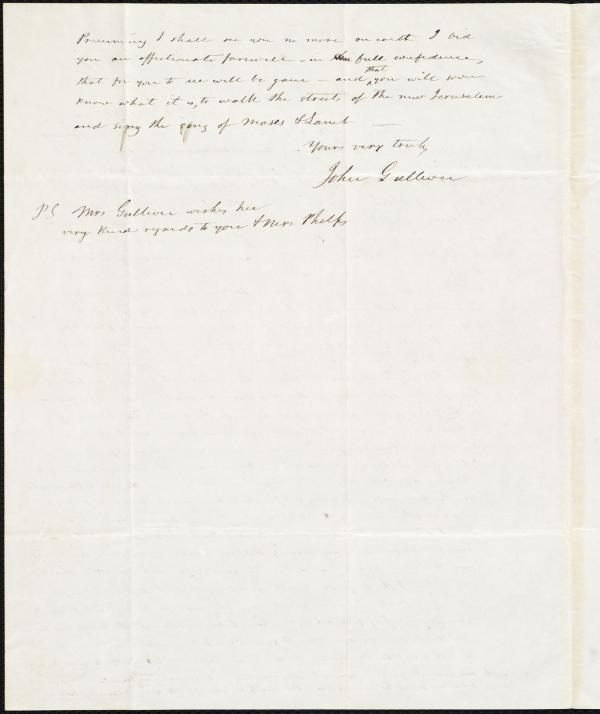 Presuming I shall see you no more on earth I bid
you an affectionate farewell - in full confidence,
that for you to die will be gain - and that you will soon
know what it is, to walk the streets of the new Jerusalem
and sing the song of Moses & Lamb —
Yours very truly
John Gulliver
PS Mrs Gulliver wishes her
very kind regards to you & Mrs Phelps